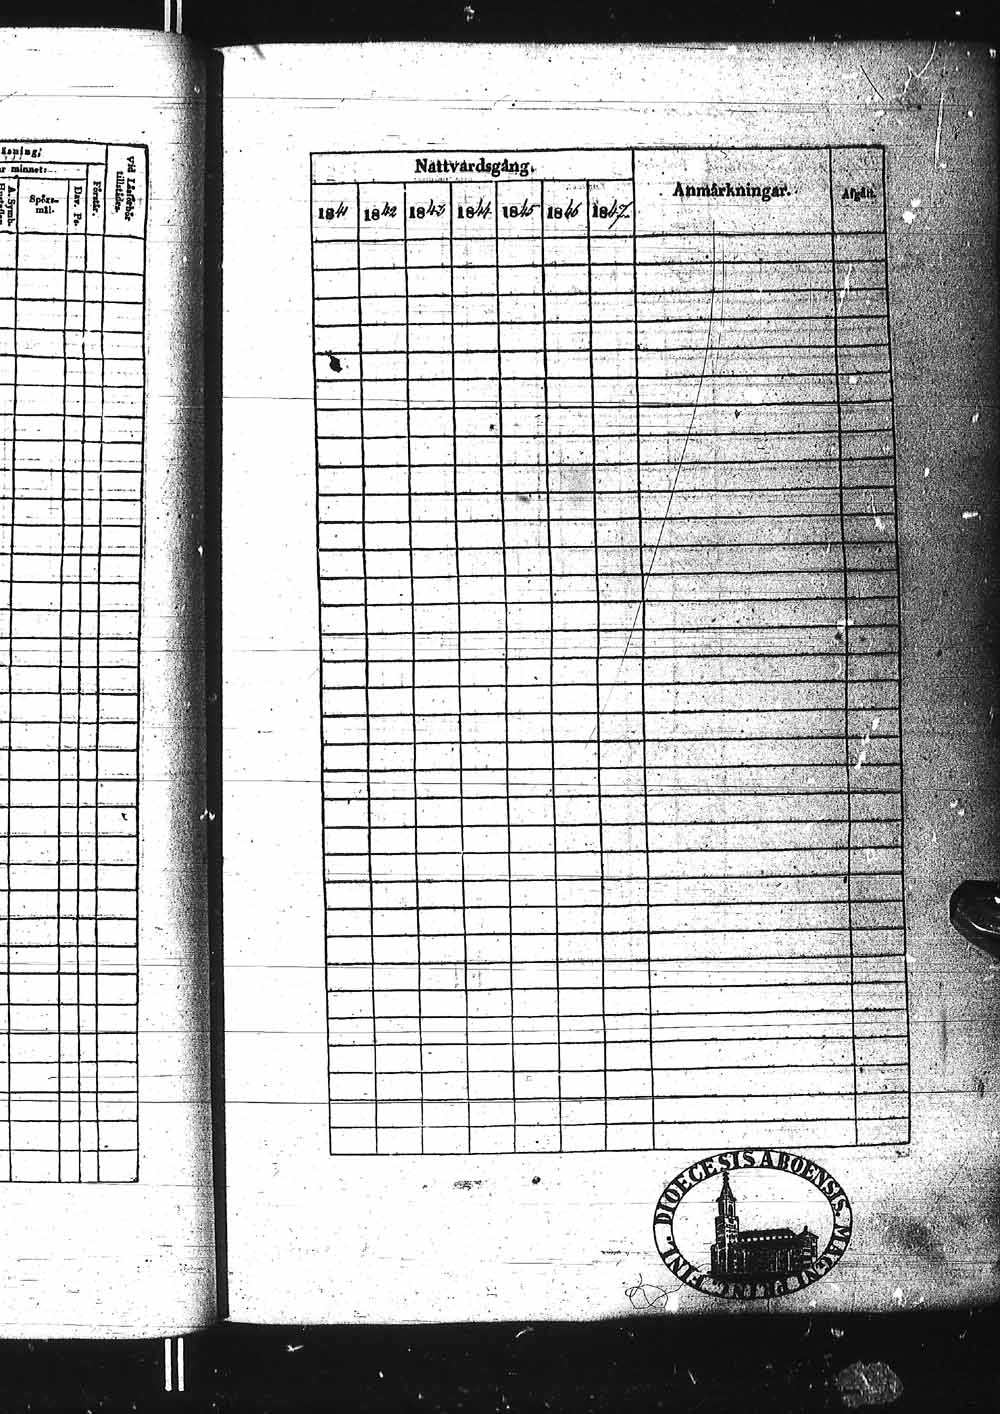 äsning;
r minnet:
A. Symb.
Spörs-
mål.
Dav. Ps.
Förstår.
Vid Läsförhör
tillstädes.
Nattvardsgång.
Anmärkningar.
Afgått.
1841 1842 1843 1844 1845 1846 1847
DIOECESIS ABOENSIS. MAGNI FINL.